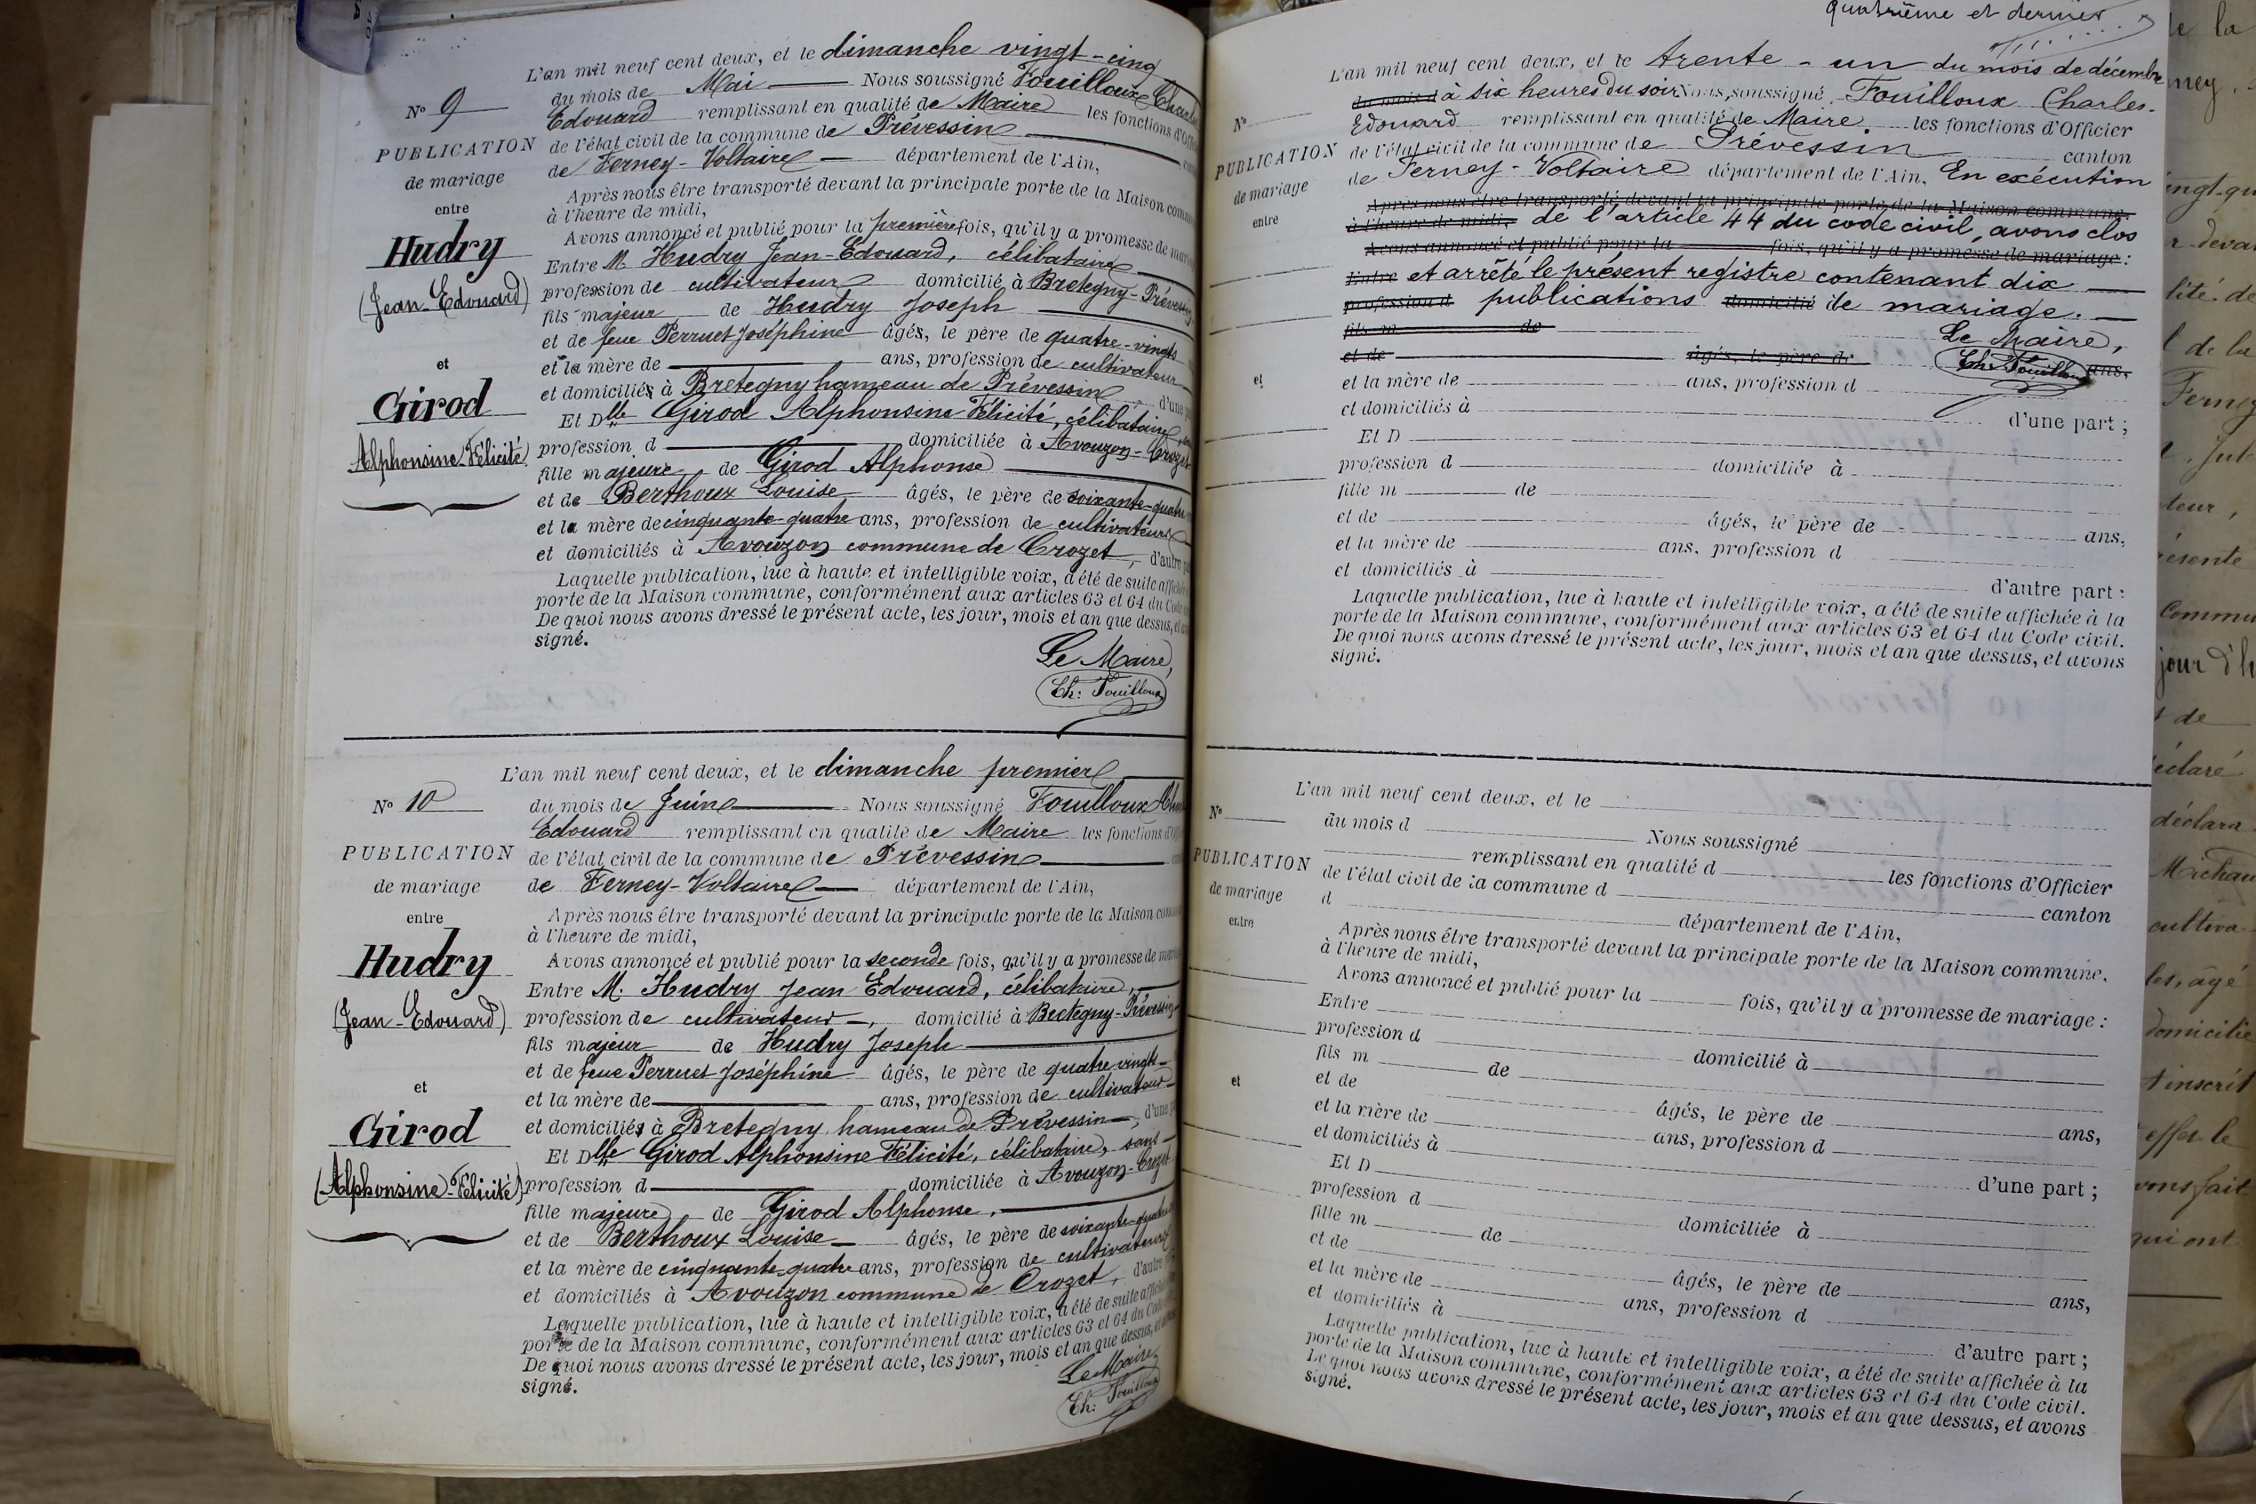 L'an mil neuf cent deux, et le dimanche vingt-cinq
du mois de Mai Nous soussigné Fouilloux
Edouard remplissant en qualité de Maire les fonctions
de l'état civil de la commune de Prévessin
de Ferney-Voltaire département de l'Ain,
Après nous être transporté devant la principale porte de la Maison
à l'heure de midi,
Avons annoncé et publié pour la première fois, qu'il y a promesse de
Entre M. Hudry Jean-Edouard, célibataire
profession de cultivateur domicilié à Bretegny-
fils majeur de Hudry Joseph
et de feue Perruet Joséphine âgés, le père de quatre-vingts
et la mère de ans, profession de cultivateur
et domiciliés à Bretegny hameau de Prévessin d'une
Et Dlle Girod Alphonsine Félicité, célibataire,
profession d domiciliée à Avouzon-
fille majeure de Girod Alphonse
et de Berthoux Louise âgés, le père de soixante-quatre
et la mère de cinquante-quatre ans, profession de cultivateurs
et domiciliés à Avouzon commune de Crozet, d'autre
Laquelle publication, lue à haute et intelligible voix, a été de suite
porte de la Maison commune, conformément aux articles 63 et 64 du
De quoi nous avons dressé le présent acte, les jour, mois et an que dessus,
signé.
Le Maire,
Ch: Fouilloux
No 9
PUBLICATION
de mariage
entre
Hudry
(Jean-Edouard)
et
Girod
Alphonsine-Félicité
L'an mil neuf cent deux, et le dimanche premier
du mois de Juin Nous soussigné Fouilloux
Edouard remplissant en qualité de Maire les fonctions
de l'état civil de la commune de Prévessin
de Ferney-Voltaire département de l'Ain,
Après nous être transporté devant la principale porte de la Maison
à l'heure de midi,
Avons annoncé et publié pour la seconde fois, qu'il y a promesse de
Entre M. Hudry Jean Edouard, célibataire,
profession de cultivateur, domicilié à Bretegny-
fils majeur de Hudry Joseph
et de feue Perruet Joséphine âgés, le père de quatre vingts
et la mère de ans, profession de cultivateur
et domiciliés à Bretegny hameau de Prévessin, d'une
Et Dlle Girod Alphonsine Félicité, célibataire, sans
profession d domiciliée à Avouzon-Crozet
fille majeure de Girod Alphonse,
et de Berthoux Louise âgés, le père de soixante-quatre
et la mère de cinquante-quatre ans, profession de cultivateurs
et domiciliés à Avouzon commune de Crozet, d'autre
Laquelle publication, lue à haute et intelligible voix, a été de suite
porte de la Maison commune, conformément aux articles 63 et 64 du
De quoi nous avons dressé le présent acte, les jour, mois et an que dessus,
signé.
Le Maire
Ch: Fouilloux
No 10
PUBLICATION
de mariage
entre
Hudry
(Jean-Edouard)
et
Girod
(Alphonsine-Félicité)
quatrième et dernier
L'an mil neuf cent deux, et le trente-un du mois de décembre
du mois d à six heures du soir Nous, soussigné Fouilloux Charles-
Edouard remplissant en qualité de Maire les fonctions d'Officier
de l'état civil de la commune de Prévessin canton
de Ferney-Voltaire département de l'Ain, En exécution
Après nous être transporté devant la principale porte de la Maison commune,
à l'heure de midi, de l'article 44 du code civil, avons clos
Avons annoncé et publié pour la fois, qu'il y a promesse de mariage:
Entre et arrêté le présent registre contenant dix
profession d publications domicilié de mariage.
fils m de Le Maire,
et de âgés, le père de Ch: Fouilloux ans,
et la mère de ans, profession d
et domiciliés à d'une part;
Et D
profession d domiciliée à
fille m de
et de âgés, le père de ans,
et la mère de ans, profession d
et domiciliés à d'autre part:
Laquelle publication, lue à haute et intelligible voix, a été de suite affichée à la
porte de la Maison commune, conformément aux articles 63 et 64 du Code civil.
De quoi nous avons dressé le présent acte, les jour, mois et an que dessus, et avons
signé.
No
PUBLICATION
de mariage
entre
et
L'an mil neuf cent deux, et le
du mois d Nous soussigné
remplissant en qualité d les fonctions d'Officier
de l'état civil de la commune d canton
d département de l'Ain,
Après nous être transporté devant la principale porte de la Maison commune,
à l'heure de midi,
Avons annoncé et publié pour la fois, qu'il y a promesse de mariage:
Entre
profession d domicilié à
fils m de
et de âgés, le père de ans,
et la mère de ans, profession d
et domiciliés à d'une part;
Et D
profession d domiciliée à
fille m de
et de âgés, le père de ans,
et la mère de ans, profession d
et domiciliés à d'autre part;
Laquelle publication, lue à haute et intelligible voix, a été de suite affichée à la
porte de la Maison commune, conformément aux articles 63 et 64 du Code civil.
De quoi nous avons dressé le présent acte, les jour, mois et an que dessus, et avons
signé.
No
PUBLICATION
de mariage
entre
et